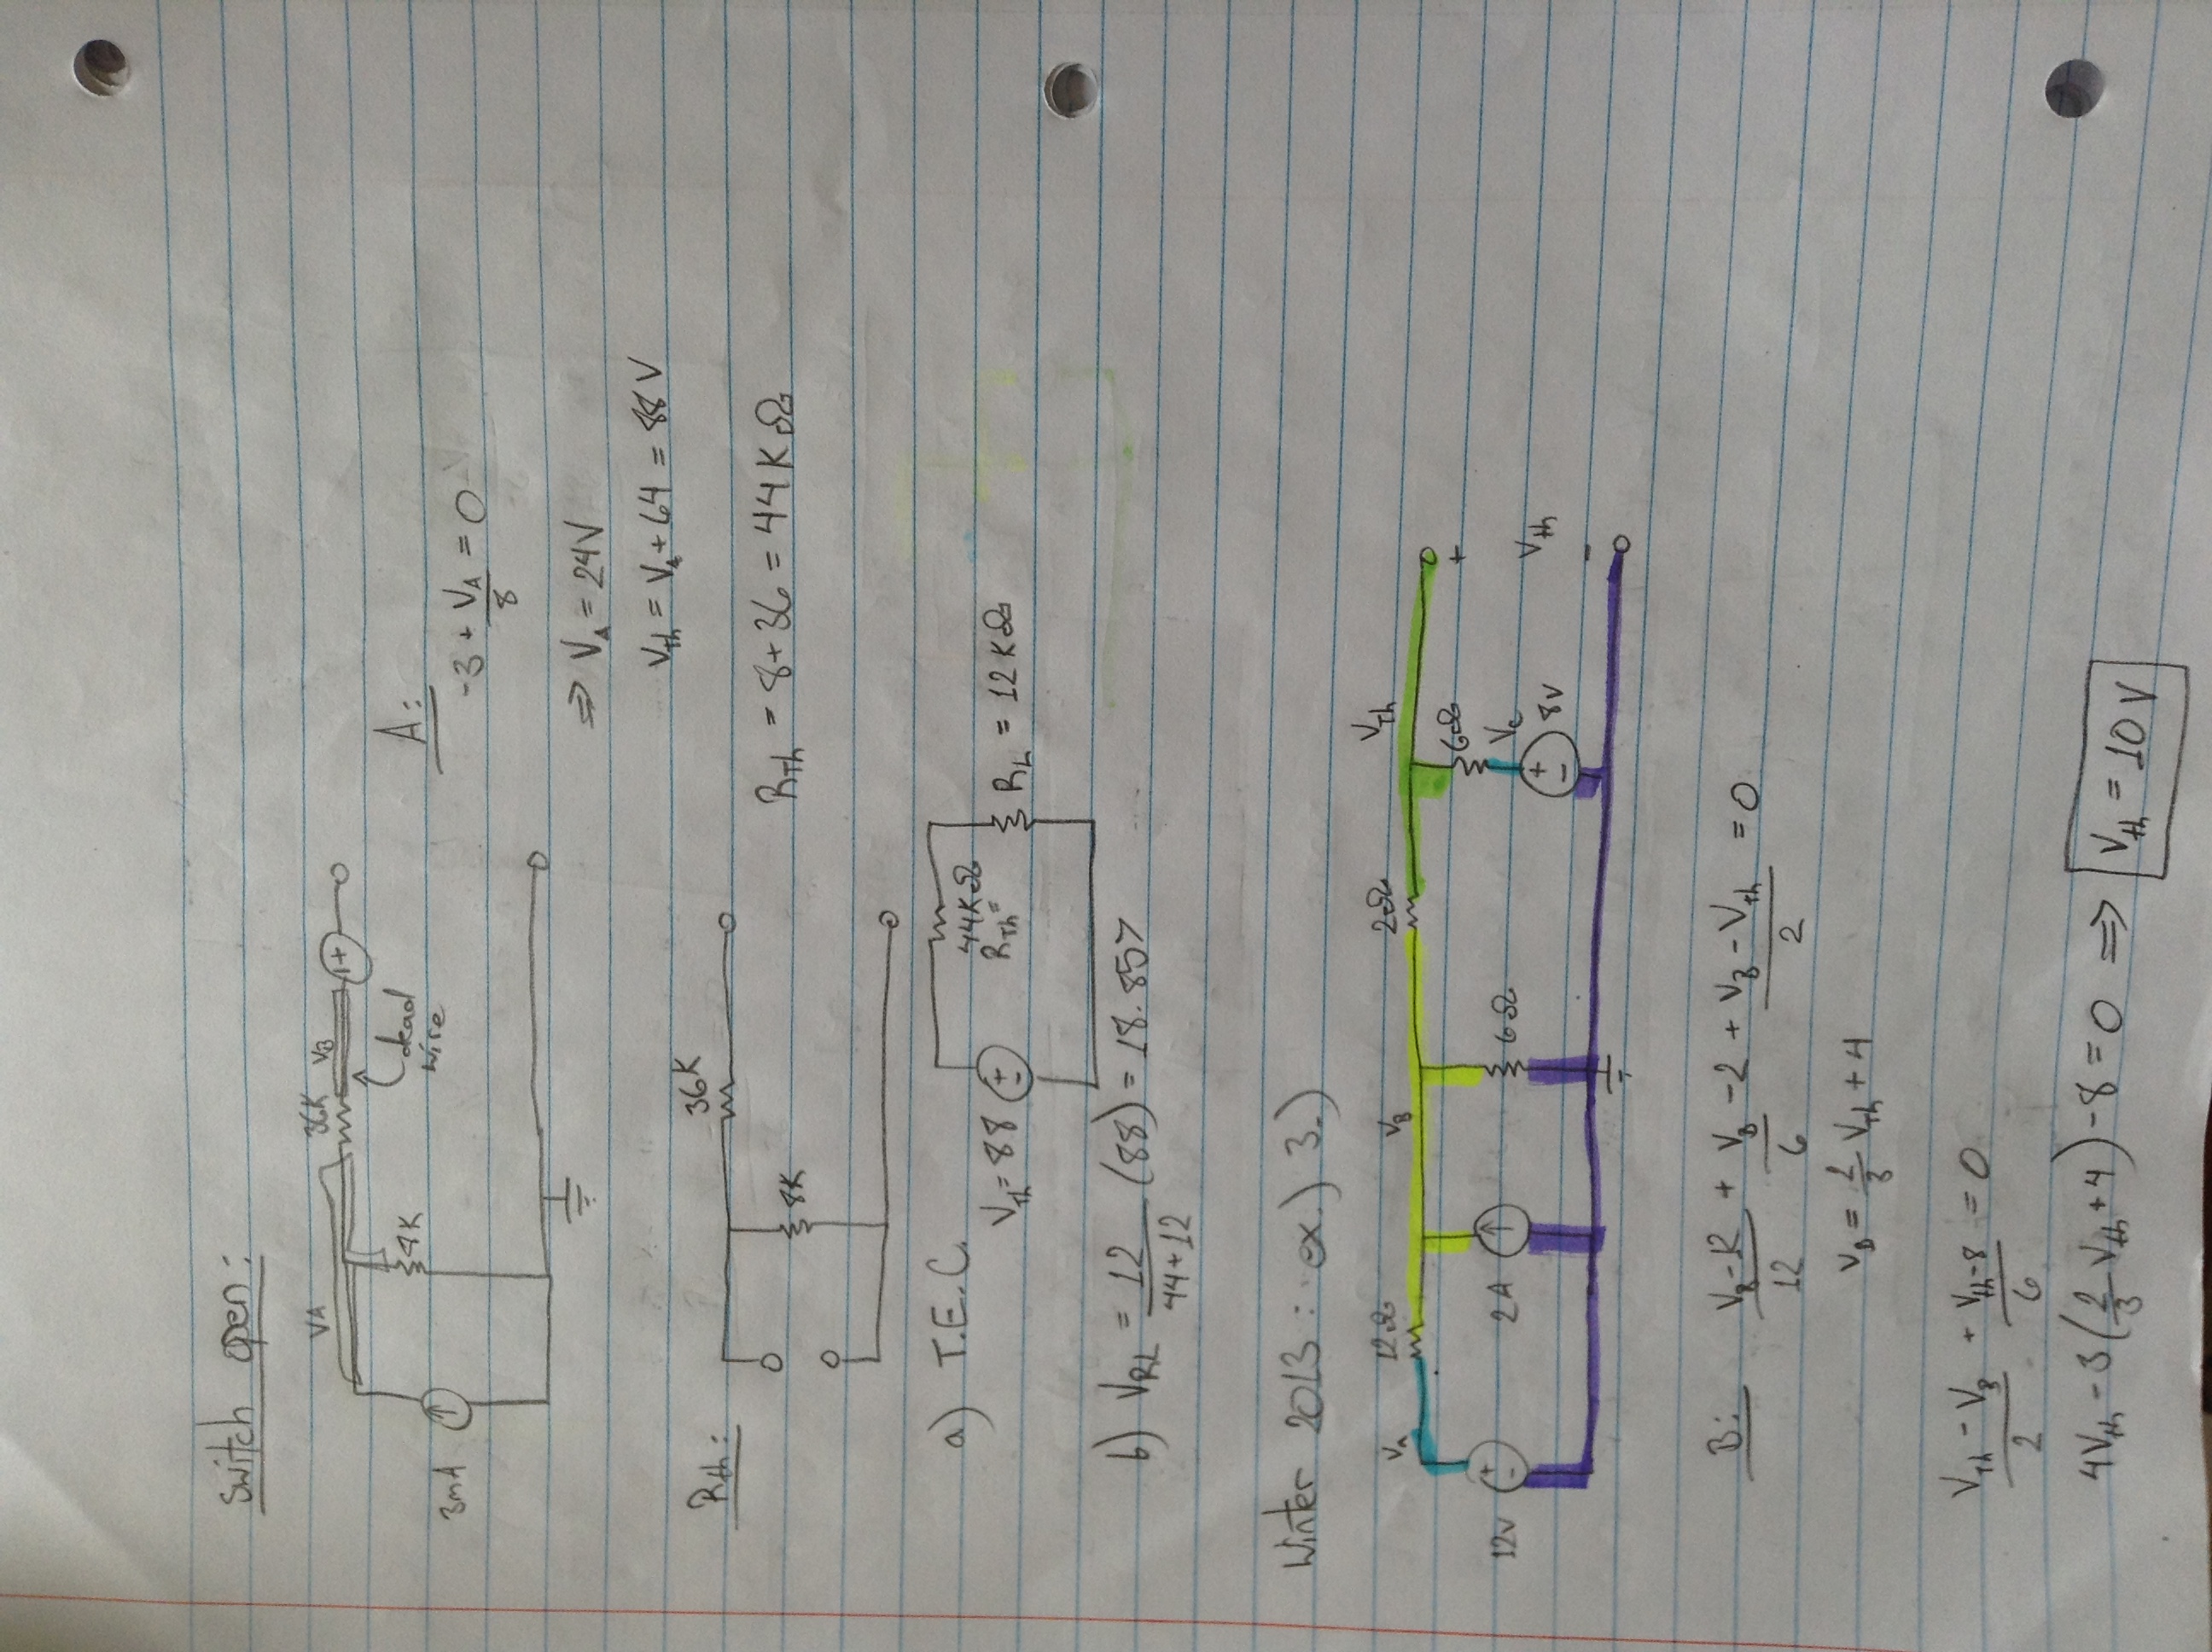 switch open:
VA 36K VB
- +
8K
dead
wire
3mA
A:
-3 + V_A/8 = 0
⇒ V_A = 24V
V_th = V_A + 64 = 88 V
R_th:
36K
8K
R_Th = 8+36 = 44 K Ω
a) T.E.C.
V_Th = 88
+
-
44KΩ
R_Th =
R_L = 12 KΩ
b) V_RL = 12/(44+12) (88) = 18.857
Winter 2013 : ex.) 3.)
V_A 12Ω V_B 2Ω V_Th
6Ω
+
12v + - 2A 6Ω V_c
+ - 8V V_th
-
B: (V_B-12)/12 + V_B/6 - 2 + (V_B - V_th)/2 = 0
V_B = 2/3 V_Th + 4
(V_Th - V_B)/2 + (V_th-8)/6 = 0
4V_th - 3(2/3 V_th + 4) - 8 = 0 ⇒ V_th = 10 V